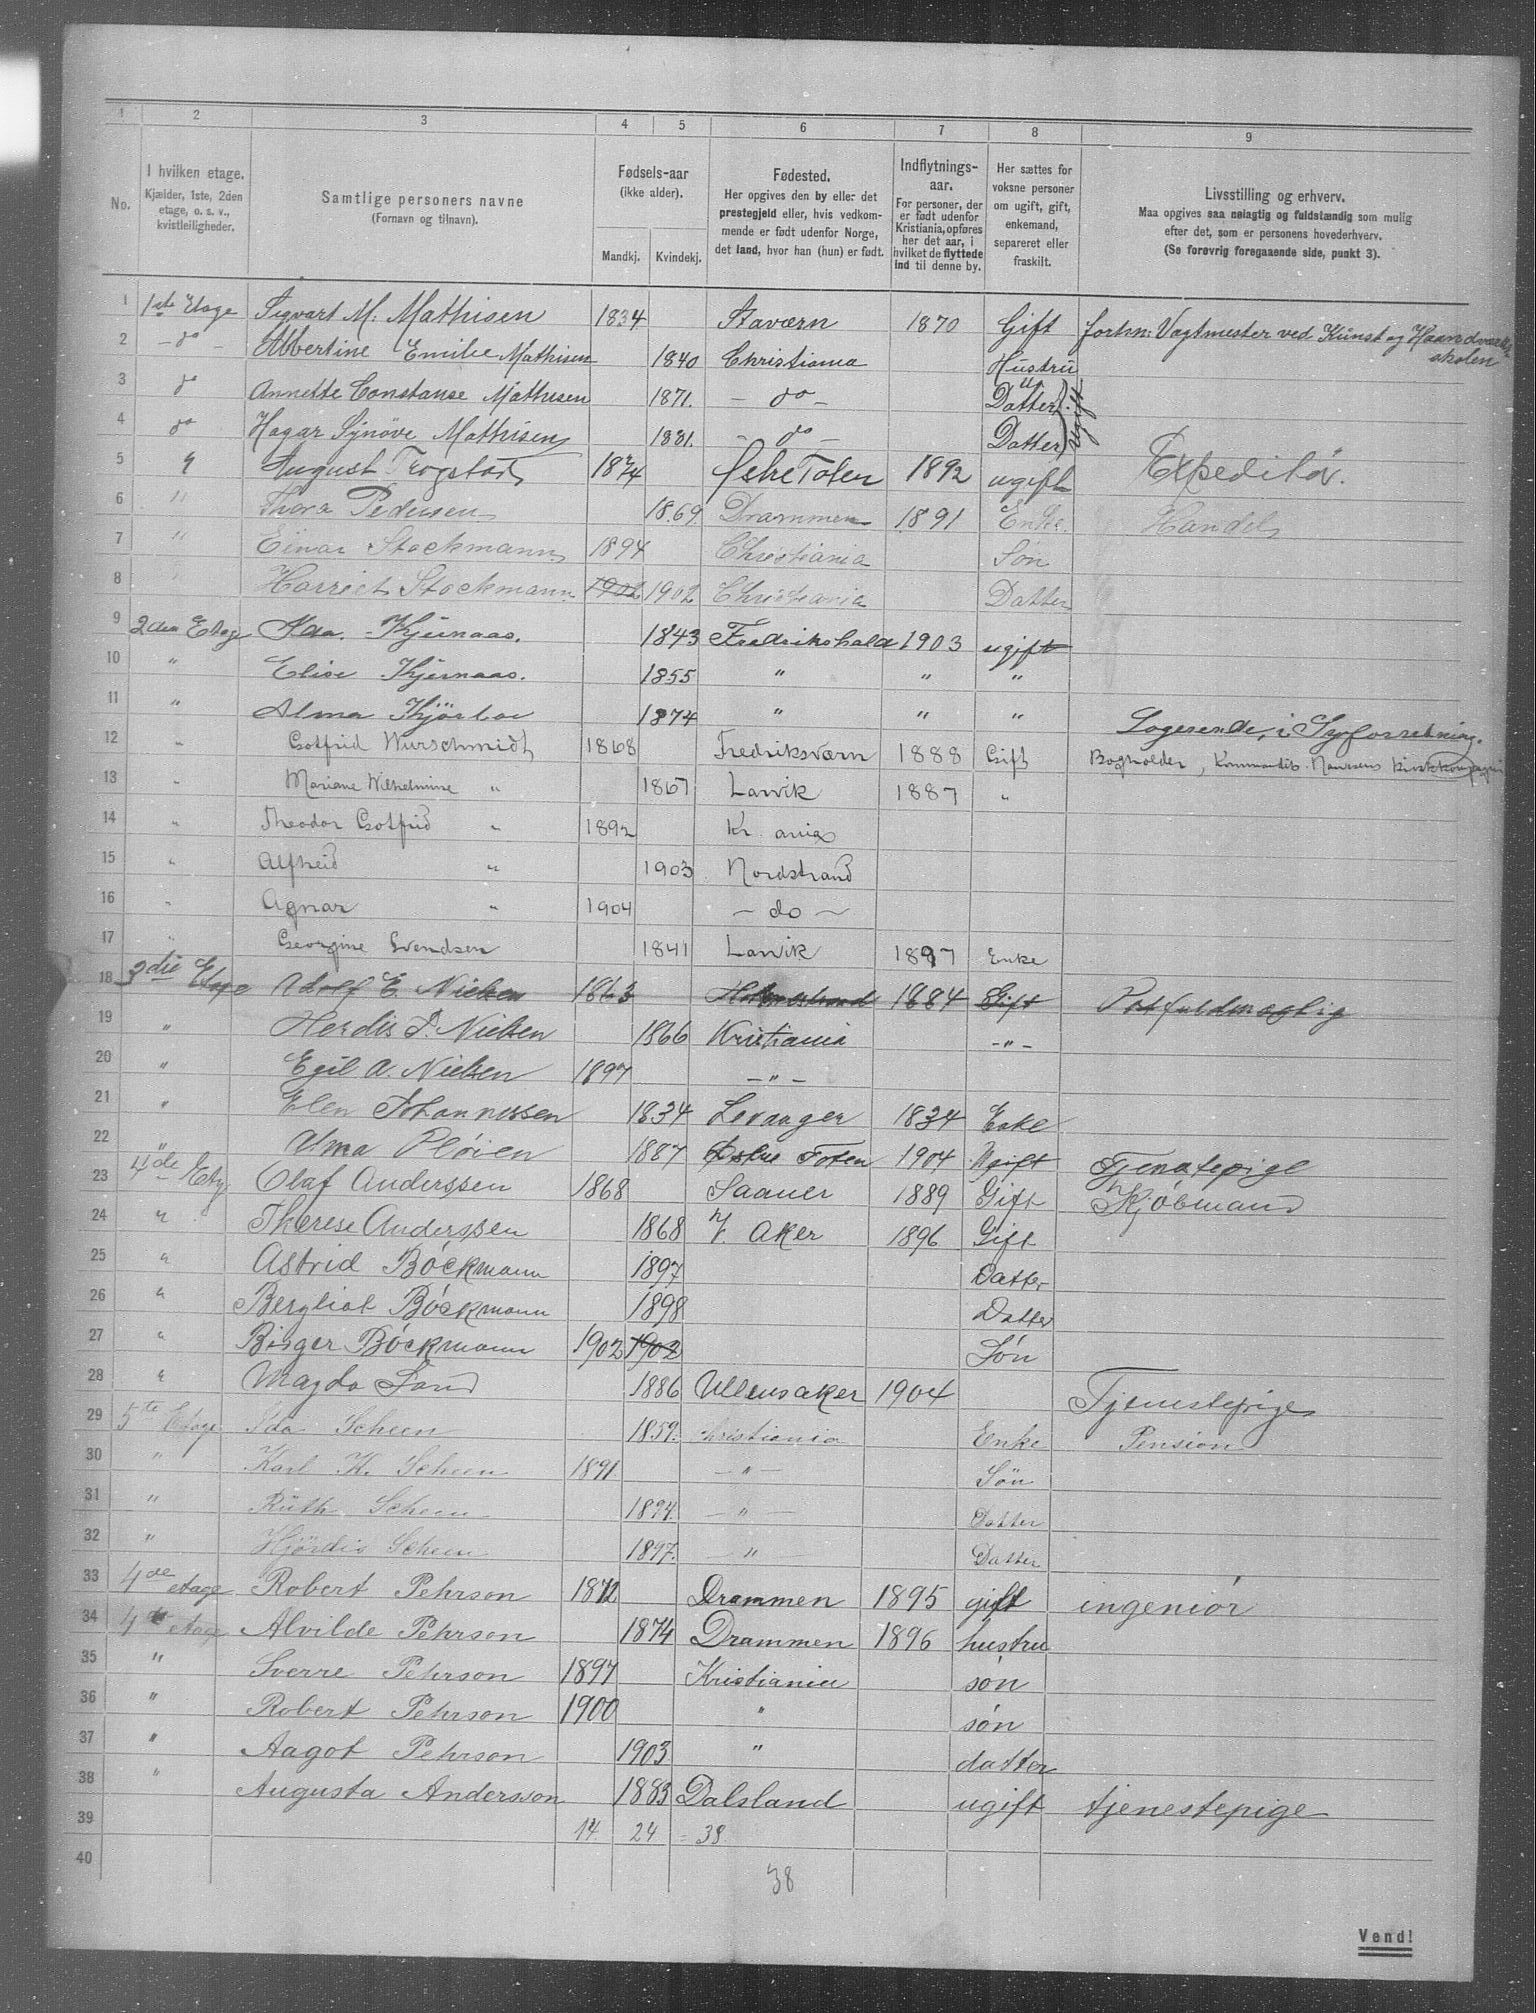 1 2 3 4 5 6 7 8 9
No.
I hvilken etage.
Kjælder, 1ste, 2den
etage, o. s. v.,
kvistleiligheder.
Samtlige personers navne
(Fornavn og tilnavn).
Fødsels-aar
(ikke alder).
Mandkj. Kvindekj.
Fødested.
Her opgives den by eller det
prestegjeld eller, hvis vedkom-
mende er født udenfor Norge,
det land, hvor han (hun) er født.
Indflytnings-
aar.
For personer, der
er født udenfor
Kristiania, opføres
her det aar, i
hvilket de flyttede
ind til denne by.
Her sættes for
voksne personer
om ugift, gift,
enkemand,
separeret eller
fraskilt.
Livsstilling og erhverv.
Maa opgives saa nøiagtig og fuldstændig som mulig
efter det, som er personens hovederhverv.
(Se forøvrig foregaaende side, punkt 3).
1 1ste Etage Sigvart M. Mathisen 1834 Staværn 1870 Gift forhn: Vagtmester ved Kunst og Haandværks
skolen
2 - do - Albertine Emilie Mathisen 1840 Christiania Hustru
3 do Annette Constanse Mathisen 1871. - do - Datter ugift
4 do Hagar Synöve Mathisen 1881. - do - Datter
5 " August Trogstad 1874 Østre Toten 1892 ugift Expeditör.
6 " Thora Pedersen 1869. Drammen 1891 Enke. Handel
7 " Einar Stockmann 1894 Christiania Søn
8 Harriet Stockmann 1902 1902 Christiania Datter
9 2den Etage Ida. Kjernaas. 1843 Fredrikshald 1903 ugift
10 " Elise Kjernaas. 1855 " " "
11 " Alma Kjørboe 1874 " " " Logerende, i Syforretning.
12 " Gotfrid Wurschmidt 1868 Fredriksværn 1888 Gift Bogholder, Kommandit.
13 " Mariane Wilhelmine " 1867 Larvik 1887 "
14 " Theodor Gotfrid " 1892 Kr. ania
15 " Alfheid " 1903 Nordstrand
16 " Agnar " 1904 - do -
17 " Georgine Svendsen 1841 Larvik 1897 Enke
18 3die Etage Adolf E. Nielsen 1863 Holmestrand 1884 Gift Postfuldmægtig
19 " Herdis P. Nielsen 1866 Kristiania - " -
20 " Egil A. Nielsen 1897 - " -
21 " Elen Johannessen 1834 Levanger 1834 Enke
22 " Alma Pløien 1887 Østre Toten 1904 Ugift Tjenstepige
23 4de Etg. Olaf Anderssen 1868 Saaner 1889 Gift Kjøbmand
24 " Therese Anderssen 1868 V. Aker 1896 Gift
25 " Astrid Böckmann 1897 Datter
26 " Bergliot Böckmann 1898 Datter
27 " Birger Böckmann 1902 1902 Søn
28 " Magda Sand 1886 Ullensaker 1904 Tjenestepige
29 5te Etage Ida Scheen 1859. Christiania Enke Pension
30 " Karl K. Scheen 1891 - " - Sön
31 " Ruth Scheen 1894. - " - Datter
32 " Hjördis Scheen 1897. - " - Datter
33 4de etage Robert Pehrson 1872 Drammen 1895 gift ingeniör
34 4de etage Alvilde Pehrson 1874 Drammen 1896 hustru
35 " Sverre Pehrson 1897 Kristiania søn
36 " Robert Pehrson 1900 " søn
37 " Aagot Pehrson 1903 " datter
38 " Augusta Andersson 1883 Dalsland ugift tjenestepige
39 14 24 = 38
40 38
Vend!